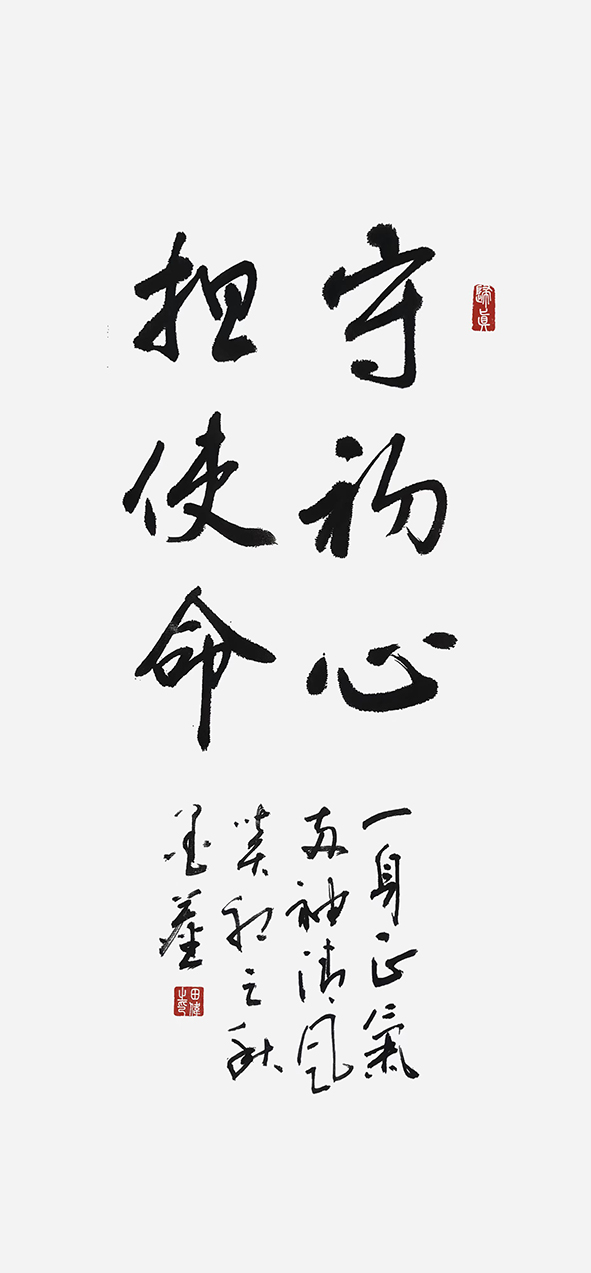 守初心
担使命
一身正氣
两袖清風
癸卯之秋
墨奎